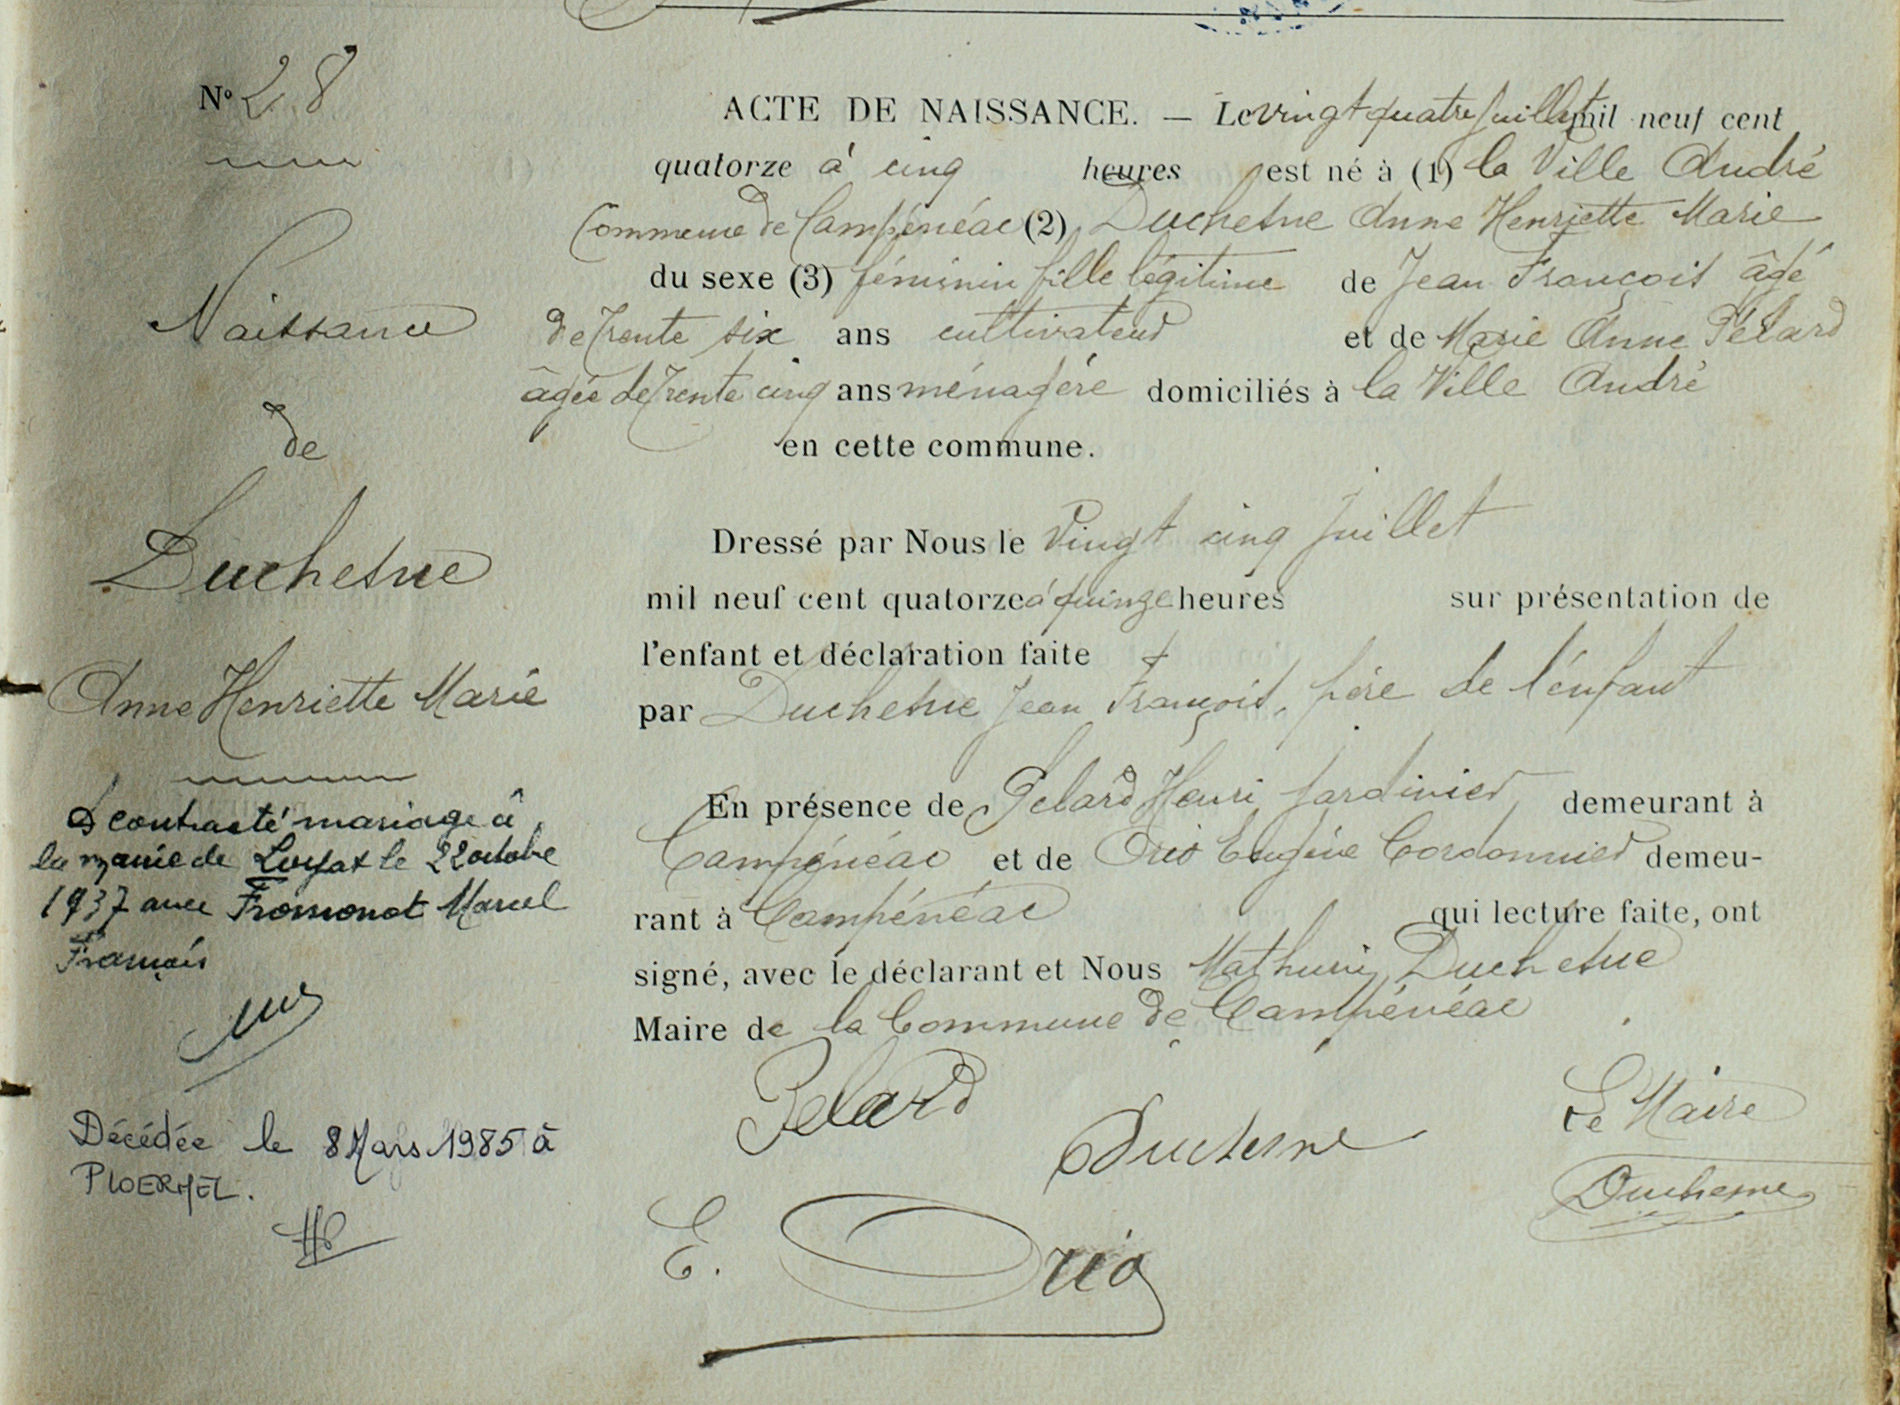 N° 28
Naissance
de
Duchesne
Anne Henriette Marie
A contracté mariage à
la mairie de Loyat le 22 octobre
1937 avec Fromont Marcel
François
Décédée le 8 Mars 1985 à
PLOERMEL.
ACTE DE NAISSANCE. — Le vingt quatre juillet mil neuf cent
quatorze à cinq heures est né à (1) la Ville André
Commune de Campénéac (2) Duchesne Anne Henriette Marie
du sexe (3) féminin fille légitime de Jean François âgé
de trente six ans cultivateur et de Marie Anne Pélard
âgée de trente cinq ans ménagère domiciliés à la Ville André
en cette commune.
Dressé par Nous le Vingt cinq juillet
mil neuf cent quatorze à quinze heures sur présentation de
l'enfant et déclaration faite
par Duchesne Jean François, père de l'enfant
En présence de Pelard Henri jardinier, demeurant à
Campénéac et de Orio Eugène Cordonnier demeu-
rant à Campénéac qui lecture faite, ont
signé, avec le déclarant et Nous Mathurin Duchesne
Maire de la Commune de Campénéac
Pelard
Duchesne
Le Maire
Duchesne
E. Orio